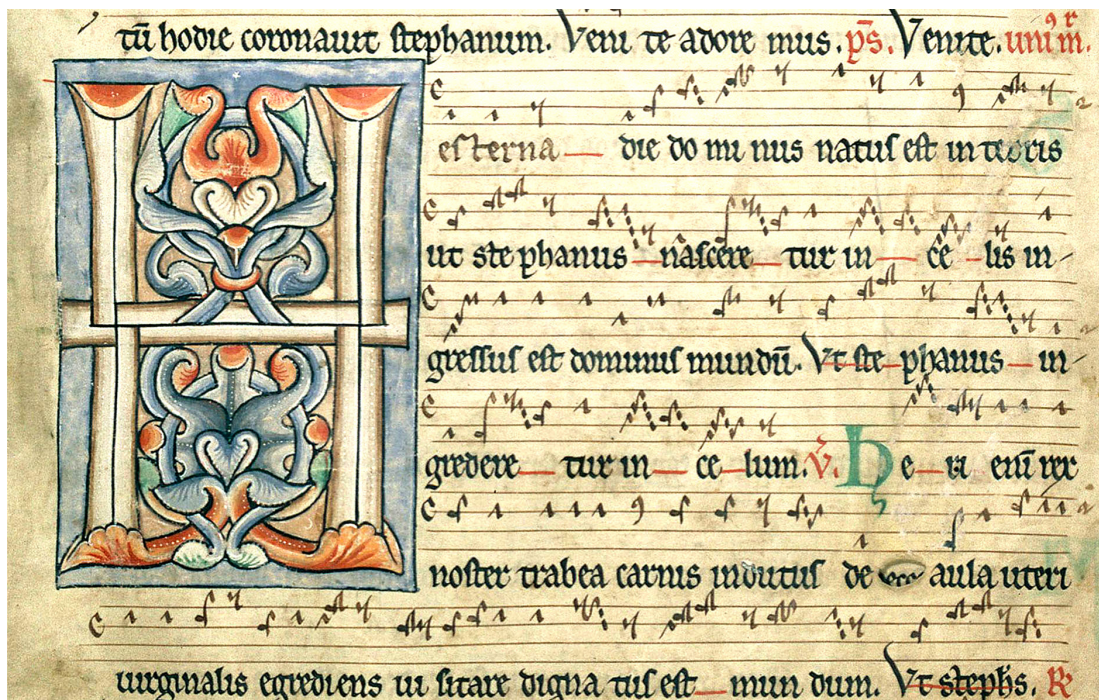 tū hodie coronauit stephanum. Veni te adore mus. ps̄. Venite. uni m̄.
Hesterna die do mi nus natus est in terris
ut ste phanus nascere tur in ce lis in
gressus est dominus mundū. Vt ste phanus in
gredere tur in ce lum. V̄. He ri enī rex
noster trabea carnis indutus de aula uteri
uirginalis egrediens ui sitare digna tus est mun dum. Vt steph̄s. R̄